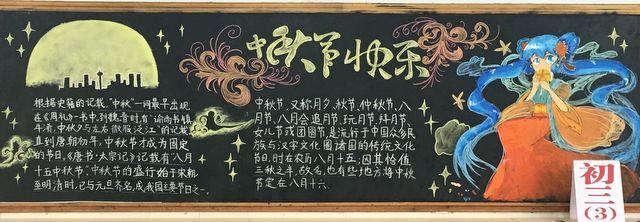 中秋节快乐
根据史籍的记载,“中秋”一词最早出现
在《周礼》一书中,到魏晋时,有“谕尚书镇
牛渚,中秋夕与左右微服泛江”的记载。
直到唐朝初年,中秋节才成为固定
的节日。《唐书·太宗记》记载有“八月
十五中秋节”。中秋节的盛行始于宋朝,
至明清时,已与元旦齐名,成我国主要节日之一。
中秋节,又称月夕、秋节、仲秋节、八
月节、八月会追月节、玩月节、拜月节、
女儿节或团圆节,是流行于中国众多民
族与汉字文化圈诸国的传统文化
节日,时在农历八月十五;因其恰值
三秋之半,故名,也有些地方将中秋
节定在八月十六。
初三(3)